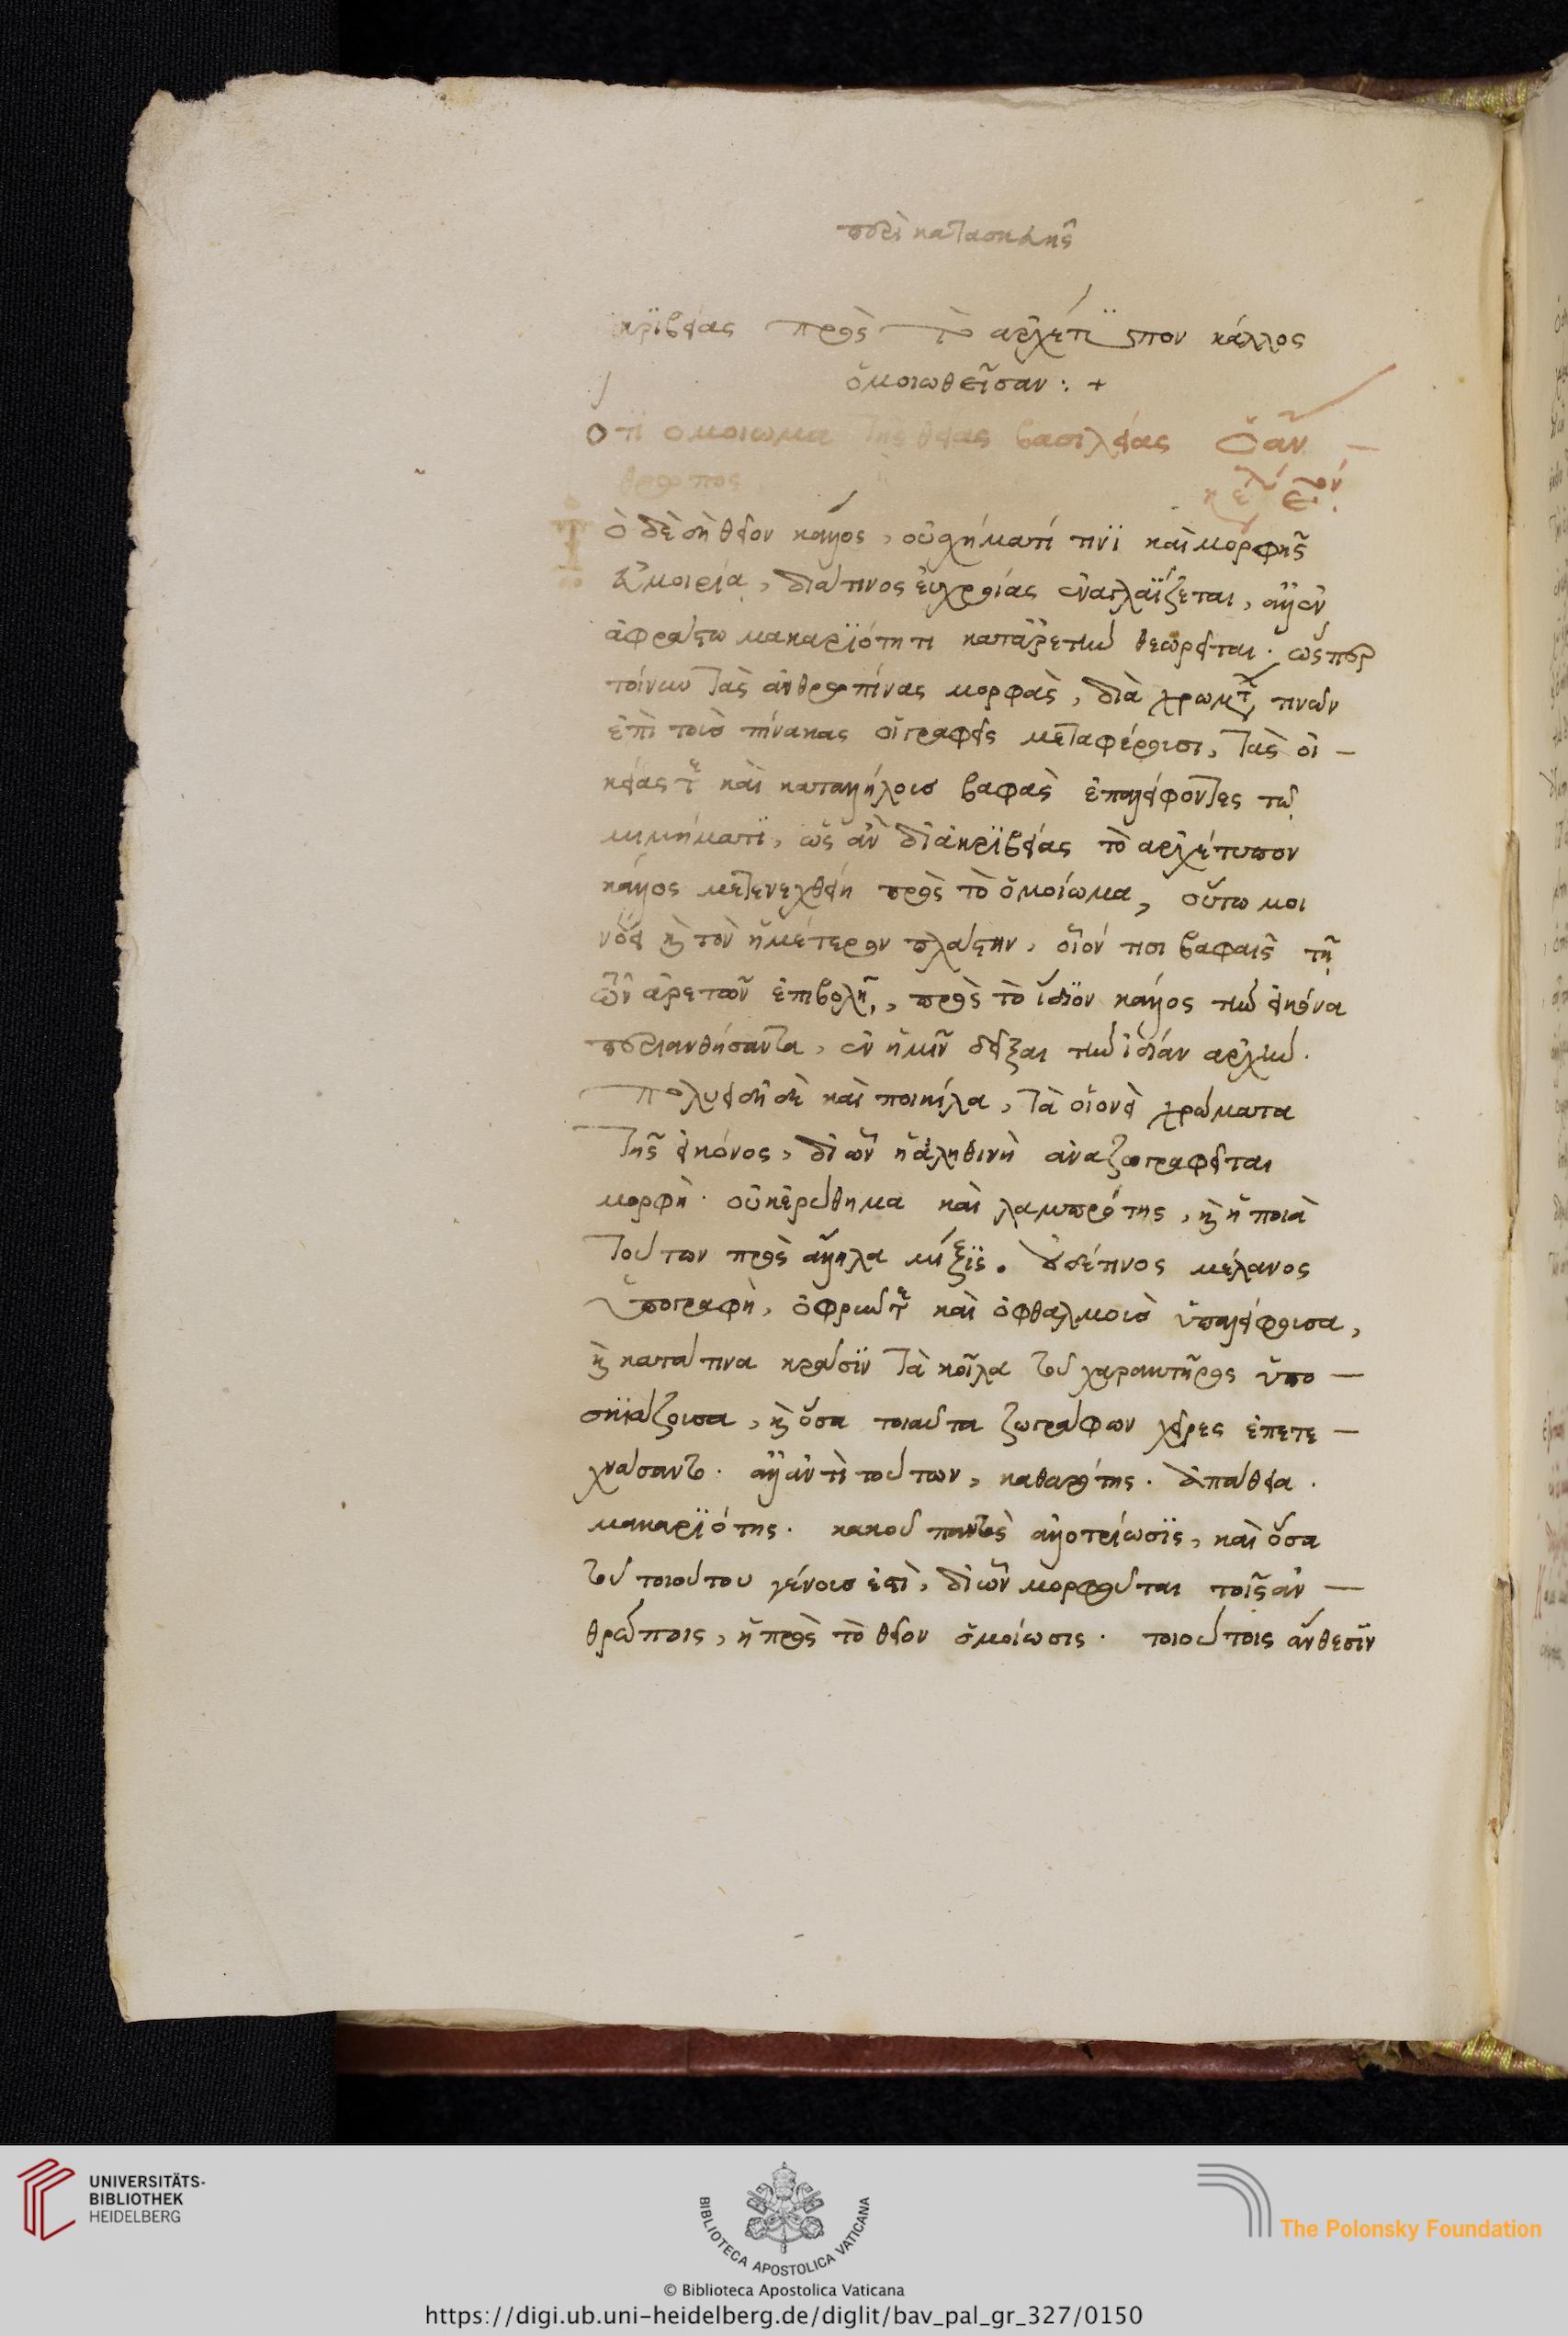 περὶ κατασκευῆς
ἀκριβείας πρὸς τὸ ἀρχέτυπον κάλλος
ὁμοιωθεῖσαν : +
Ὅτι ὁμοίωμα τῆς θείας βασιλείας ὁ ἄν —
θρωπος
Ὁ δὲ δὴ θεῖον κάλλος, οὐ σχήματί τινι καὶ μορφῆς
εὐμοιρία, διά τινος εὐχροίας ἐναγλαΐζεται, ἀλλ' ἐν
ἀφράστω μακαριότητι κατ' ἀρετὴν θεωρεῖται· ὥσπερ
τοίνυν τὰς ἀνθρωπίνας μορφὰς, διὰ χρωμάτων τινῶν
ἐπὶ τοὺς πίνακας οἱ γραφεῖς μεταφέρουσι, τὰς οἰ —
κείας τὲ καὶ καταλλήλους βαφὰς ἐπαλείφοντες τῷ
μιμήματι, ὡς ἂν δι' ἀκριβείας τὸ ἀρχέτυπον
κάλλος μετενεχθείη πρὸς τὸ ὁμοίωμα, οὕτω μοι
νόει καὶ τὸν ἡμέτερον πλάστην, οἷόν τισι βαφαῖς τῇ
τῶν ἀρετῶν ἐπιβολῇ, πρὸς τὸ ἴδιον κάλλος τὴν εἰκόνα
περιανθήσαντα, ἐν ἡμῖν δεῖξαι τὴν ἰδίαν ἀρχήν.
Πολυειδῆ δὲ καὶ ποικίλα, τὰ οἱονεὶ χρώματα
τῆς εἰκόνος, δι' ὧν ἡ ἀληθινὴ ἀναζωγραφεῖται
μορφὴ· οὐκ ἐρύθημα καὶ λαμπρότης, καὶ ἡ ποιὰ
τούτων πρὸς ἄλληλα μίξις. οὐδέ τινος μέλανος
ὑπογραφὴ, ὀφρύν τὲ καὶ ὀφθαλμοὺς ὑπαλείφουσα,
καὶ κατά τινα κρᾶσιν τὰ κοῖλα τοῦ χαρακτῆρος ὑπο —
σκιάζουσα, καὶ ὅσα τοιαῦτα ζωγράφων χεῖρες ἐπετε —
χνάσαντο· ἀλλ' ἀντὶ τούτων, καθαρότης. ἀπάθεια.
μακαριότης. κακοῦ παντὸς ἀλλοτρίωσις, καὶ ὅσα
τοῦ τοιούτου γένους ἐστὶ, δι' ὧν μορφοῦται τοῖς ἀν —
θρώποις, ἡ πρὸς τὸ θεῖον ὁμοίωσις. τοιούτοις ἄνθεσιν
UNIVERSITÄTS-
BIBLIOTHEK
HEIDELBERG
BIBLIOTECA APOSTOLICA VATICANA
© Biblioteca Apostolica Vaticana
The Polonsky Foundation
https://digi.ub.uni-heidelberg.de/diglit/bav_pal_gr_327/0150